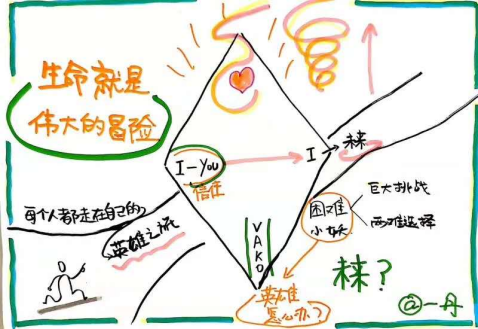 生命就是
伟大的冒险
I-You
I
未来
每个人都走在自己的
英雄之旅
VAKO
困难
小妖
巨大挑战
两难选择
英雄
怎么办?
未来?
@一丹